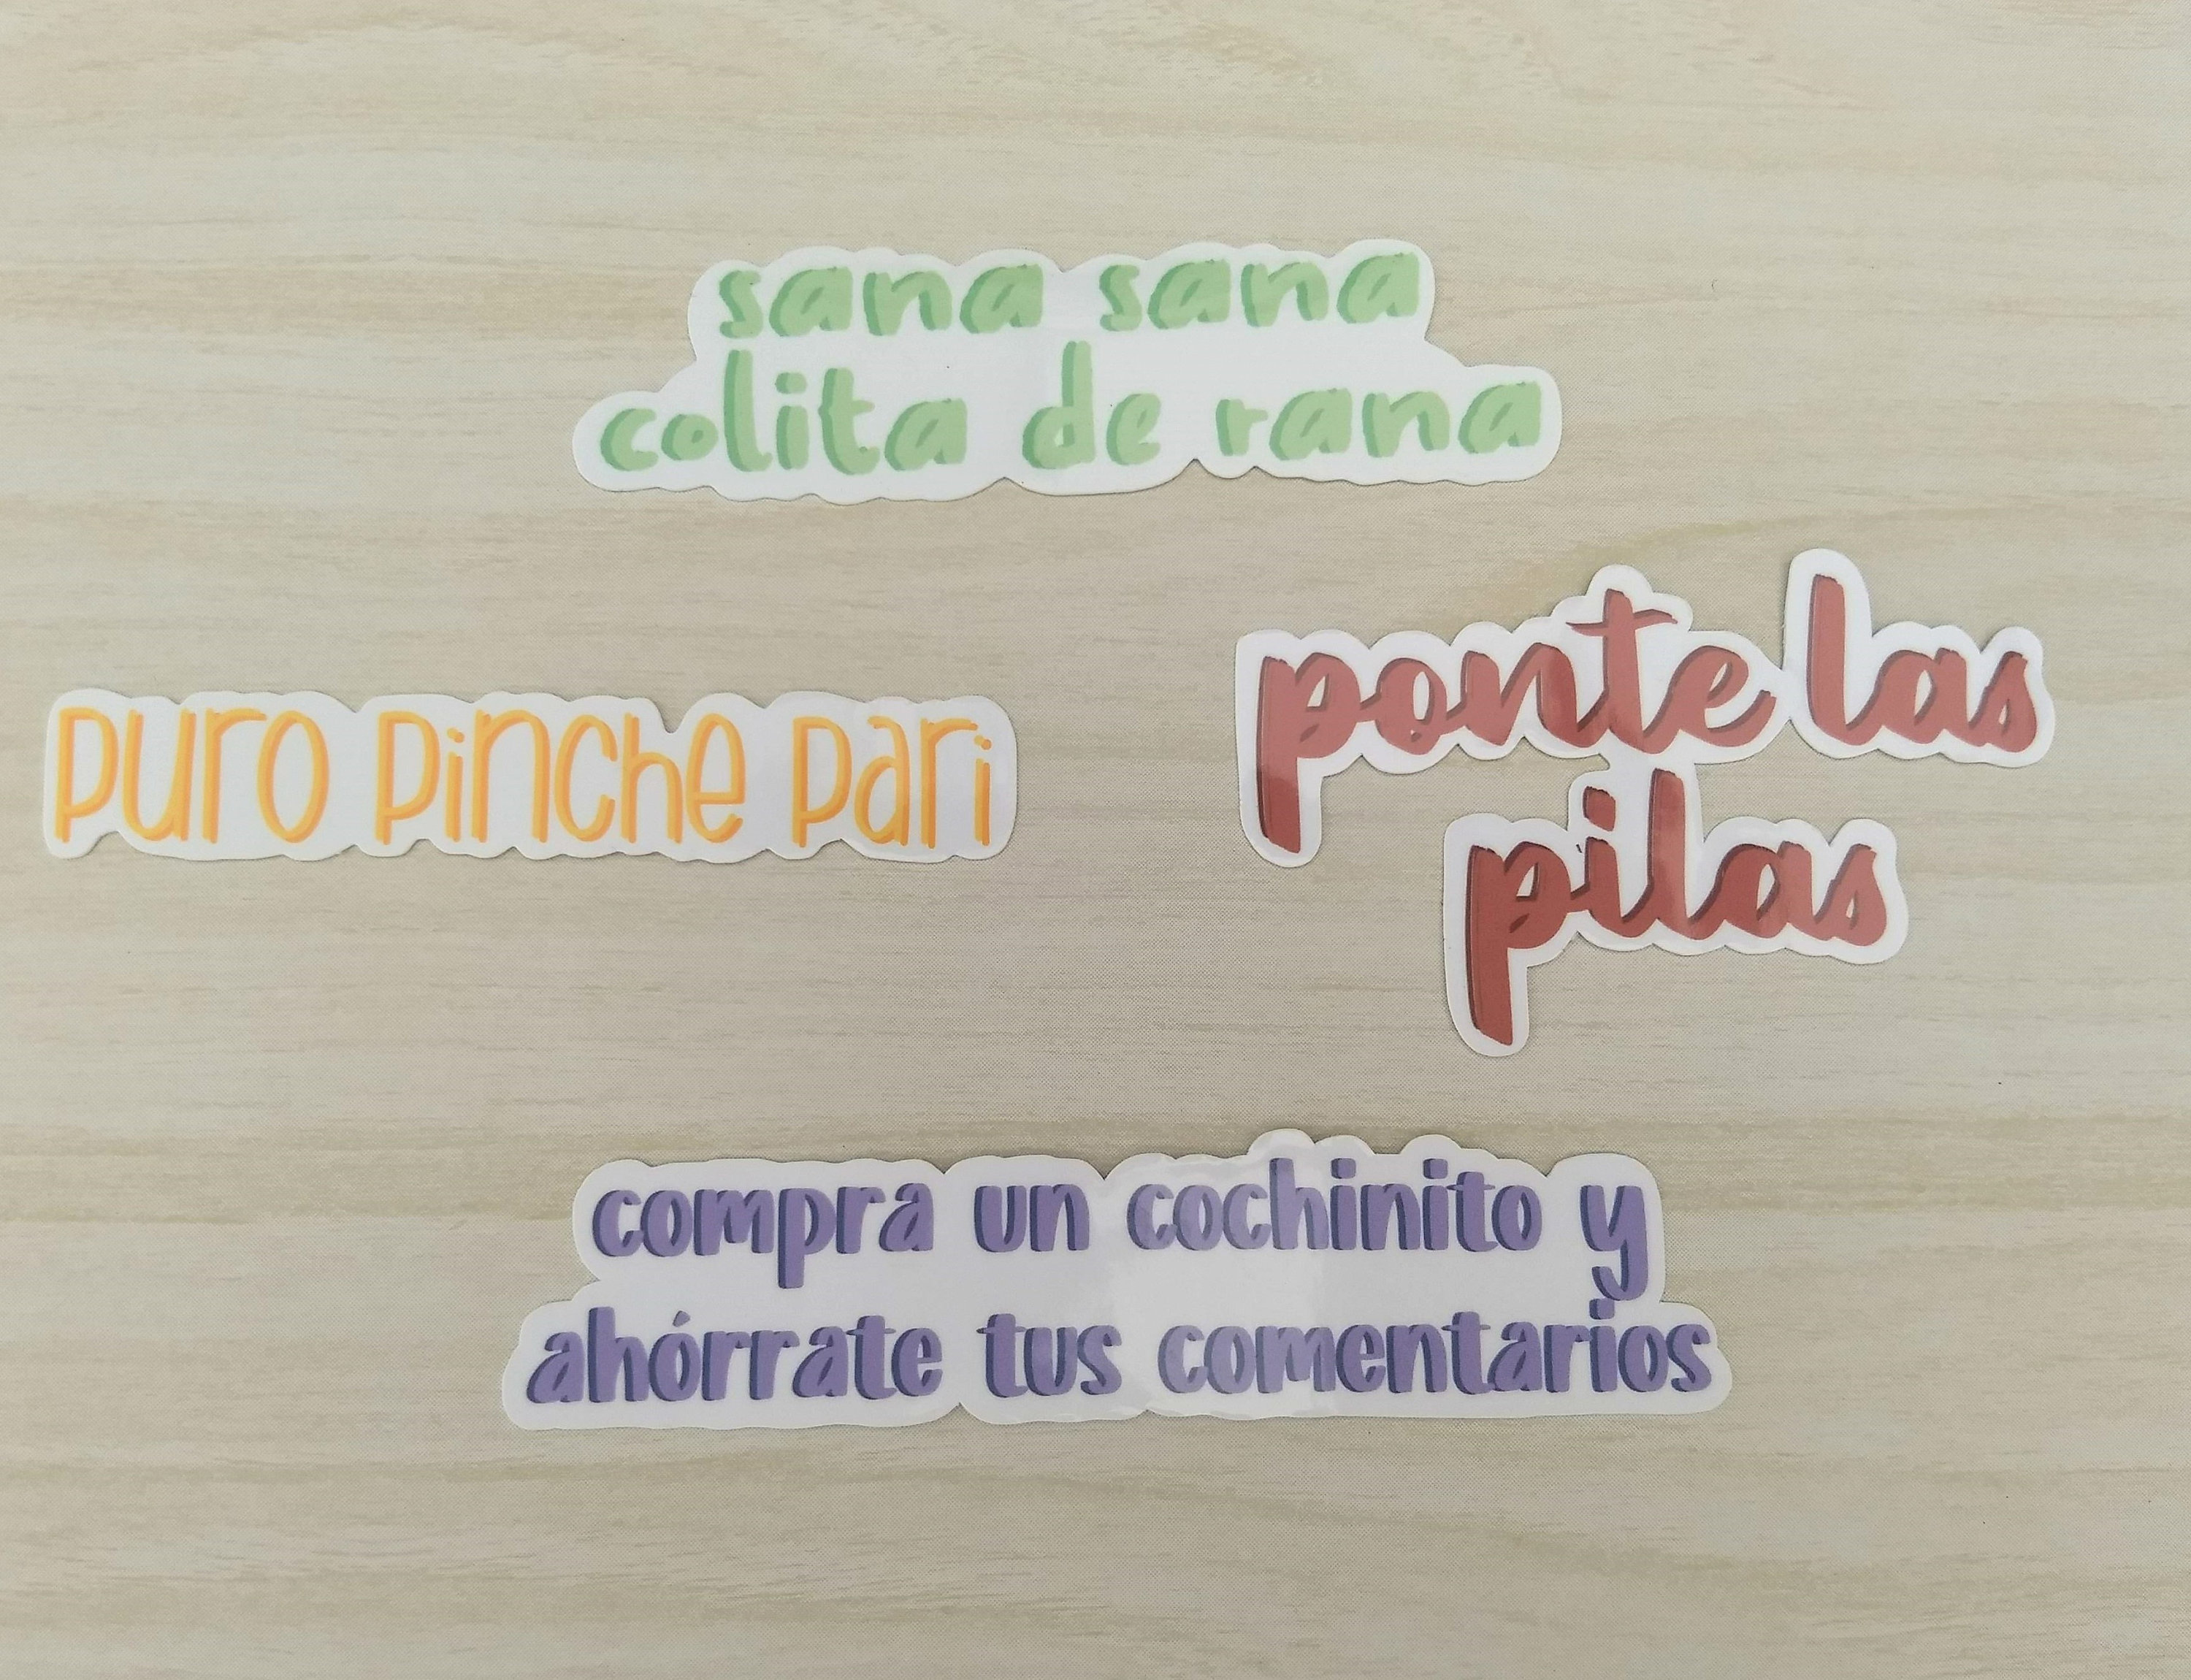 sana sana
colita de rana
puro pinche pari
ponte las
pilas
compra un cochinito y
ahórrate tus comentarios